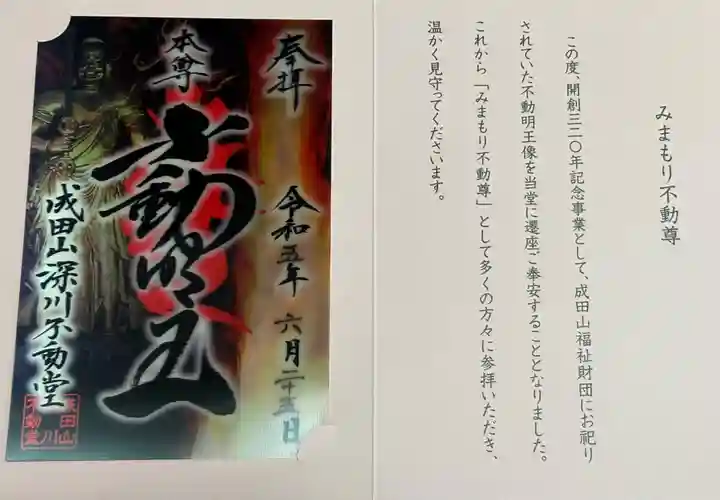 みまもり不動尊
この度、開創三二〇年記念事業として、成田山福祉財団にお祀り
されていた不動明王像を当堂に遷座ご奉安することとなりました。
これから「みまもり不動尊」として多くの方々に参拝いただき、
温かく見守ってくださいます。
奉拝
令和五年 六月二十五日
本尊
不動明王
成田山深川不動堂